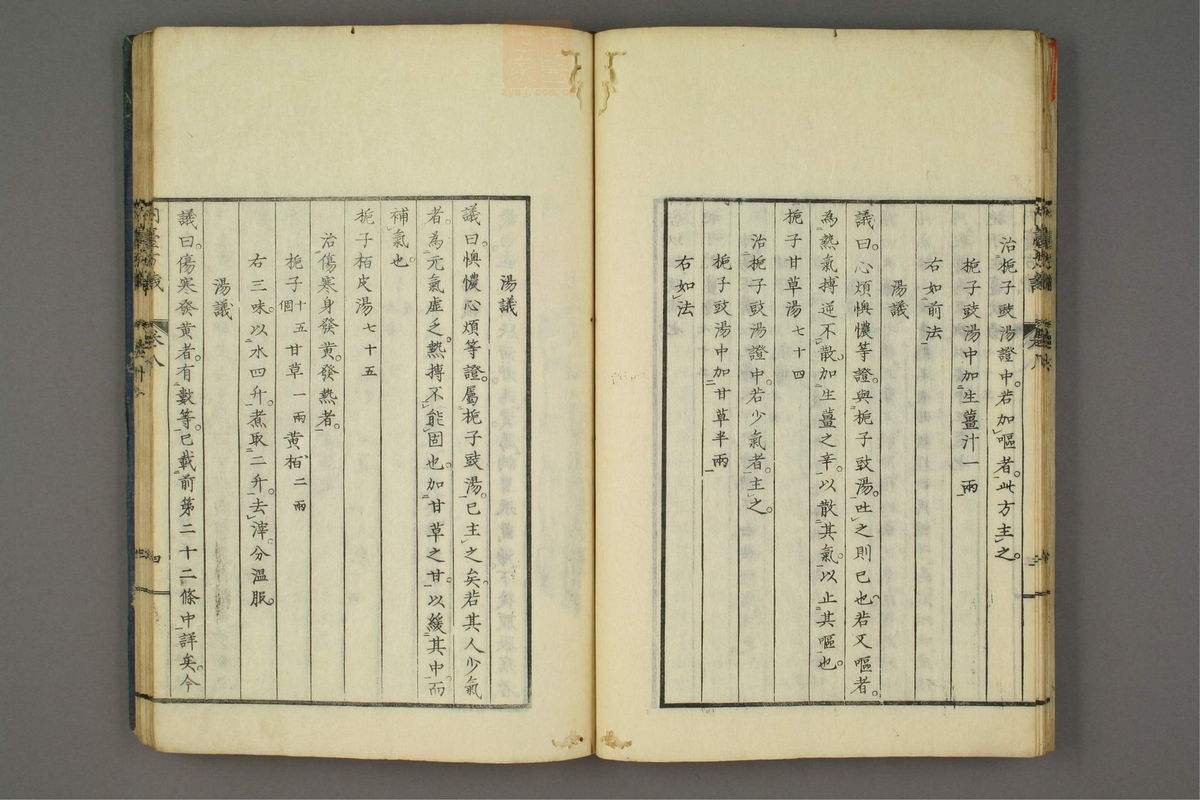 治梔子豉湯證中若加嘔者此方主之
梔子豉湯中加生薑汁一兩
右如前法
湯議
議曰心煩懊憹等證與梔子豉湯吐之則已也若又嘔者
為熱氣搏逆不散加生薑之辛以散其氣以止其嘔也
梔子甘草湯七十四
治梔子豉湯證中若少氣者主之
梔子豉湯中加甘草半兩
右如法
湯議
議曰懊憹心煩等證屬梔子豉湯已主之矣若其人少氣
者為元氣虛乏熱搏不能固也加甘草之甘以緩其中而
補氣也
梔子栢皮湯七十五
治傷寒身發黃發熱者
梔子十五個甘草一兩黃栢二兩
右三味以水四升煮取二升去滓分溫服
湯議
議曰傷寒發黃者有數等已載前第二十二條中詳矣今
卷八